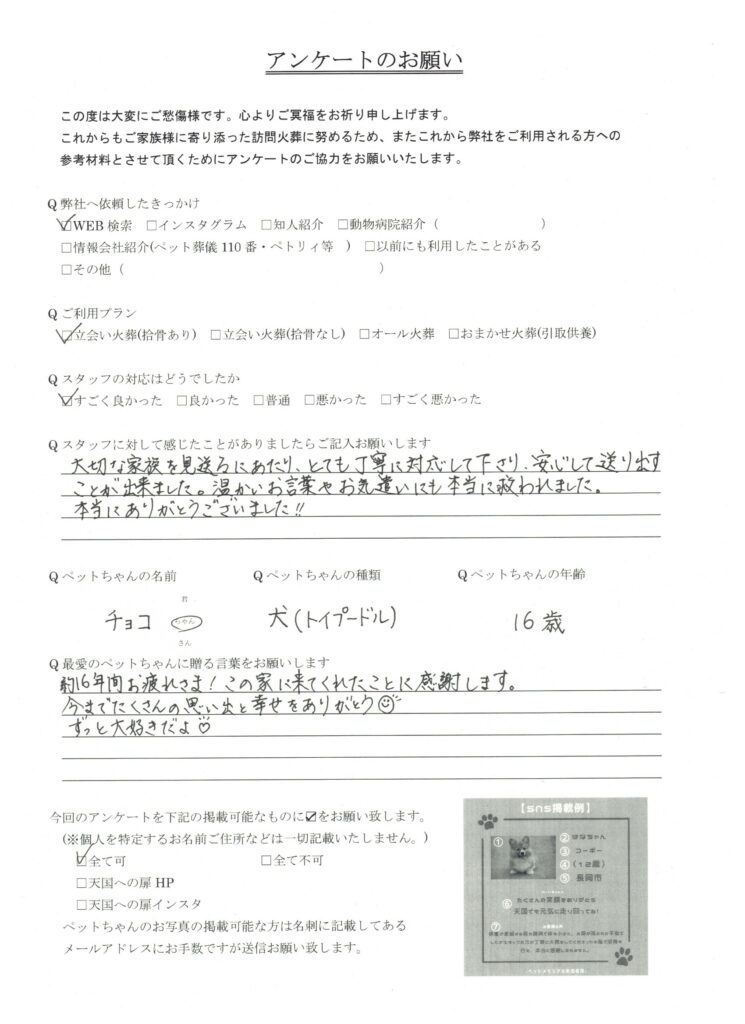 アンケートのお願い
この度は大変にご愁傷様です。心よりご冥福をお祈り申し上げます。
これからもご家族様に寄り添った訪問火葬に努めるため、またこれから弊社をご利用される方への
参考材料とさせて頂くためにアンケートのご協力をお願いいたします。
Q 弊社へ依頼したきっかけ
☑WEB 検索 □インスタグラム □知人紹介 □動物病院紹介（ ）
□情報会社紹介(ペット葬儀 110 番・ペトリィ等 ) □以前にも利用したことがある
□その他（ ）
Q ご利用プラン
☑立会い火葬(拾骨あり) □立会い火葬(拾骨なし) □オール火葬 □おまかせ火葬(引取供養)
Q スタッフの対応はどうでしたか
☑すごく良かった □良かった □普通 □悪かった □すごく悪かった
Q スタッフに対して感じたことがありましたらご記入お願いします
大切な家族を見送るにあたり、とても丁寧に対応して下さり、安心して送り出す
ことが出来ました。温かいお言葉やお気遣いにも本当に救われました。
本当にありがとうございました!!
Q ペットちゃんの名前 Q ペットちゃんの種類 Q ペットちゃんの年齢
君
チョコ ちゃん 犬(トイプードル) 16歳
さん
Q 最愛のペットちゃんに贈る言葉をお願いします
約16年間お疲れさま! この家に来てくれたことに感謝します。
今までたくさんの思い出と幸せをありがとう
ずっと大好きだよ
今回のアンケートを下記の掲載可能なものに☑をお願い致します。
(※個人を特定するお名前ご住所などは一切記載いたしません。)
☑全て可 □全て不可
□天国への扉 HP
□天国への扉インスタ
ペットちゃんのお写真の掲載可能な方は名刺に記載してある
メールアドレスにお手数ですが送信お願い致します。
【sns掲載例】
① ② はなちゃん
③ コーギー
④ (12歳)
⑤ 長岡市
⑥ たくさんの笑顔をありがとう
天国でも元気に走り回ってね!
⑦